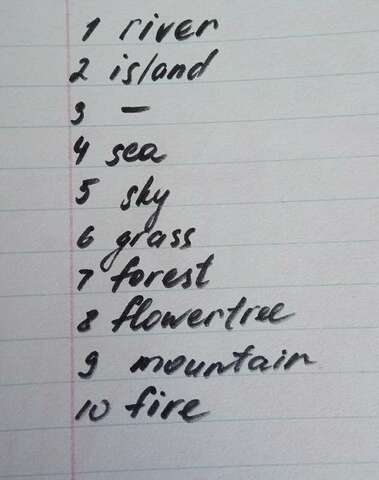 1 river
2 island
3 –
4 sea
5 sky
6 grass
7 forest
8 flowertree
9 mountain
10 fire